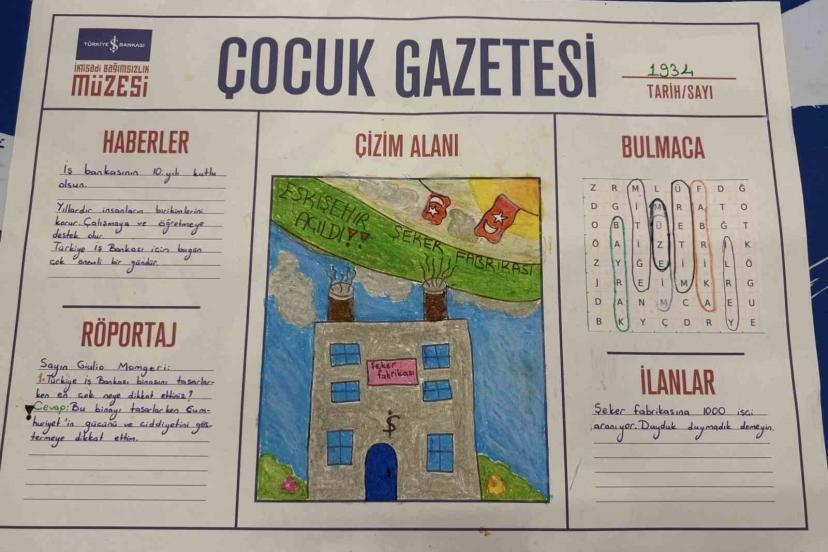 TÜRKİYE İŞ BANKASI
İKTİSADİ BAĞIMSIZLIK
MÜZESİ
ÇOCUK GAZETESİ
1934
TARİH/SAYI
HABERLER
İş bankasının 10.yılı kutlu
olsun.
Yıllardır insanların birikimlerini
korur. Çalışmaya ve öğretmeye
destek olur.
Türkiye İş Bankası için bugün
çok önemli bir gündür.
RÖPORTAJ
Sayın Giulio Momgeri:
1. Türkiye İş Bankası binasını tasarlar-
ken en çok neye dikkat ettiniz?
Cevap: Bu binayı tasarlarken Cum-
huriyet'in gücünü ve ciddiyetini gös-
termeye dikkat ettim.
ÇİZİM ALANI
ESKİŞEHİR ŞEKER FABRİKASI
AÇILDI!!
Şeker
fabrikası
İŞ
BULMACA
Z R M L Ü F D Ğ
D G İ M R A T O
O B T Ü E B Ğ T
Ö A İ Z T R Ö K
Z Y N E İ İ L Ö
J R G İ M K R G
D A N M C A E U
B K Y Ç D R Y E
İLANLAR
Şeker fabrikasına 1000 işçi
aranıyor. Duyduk duymadık demeyin.